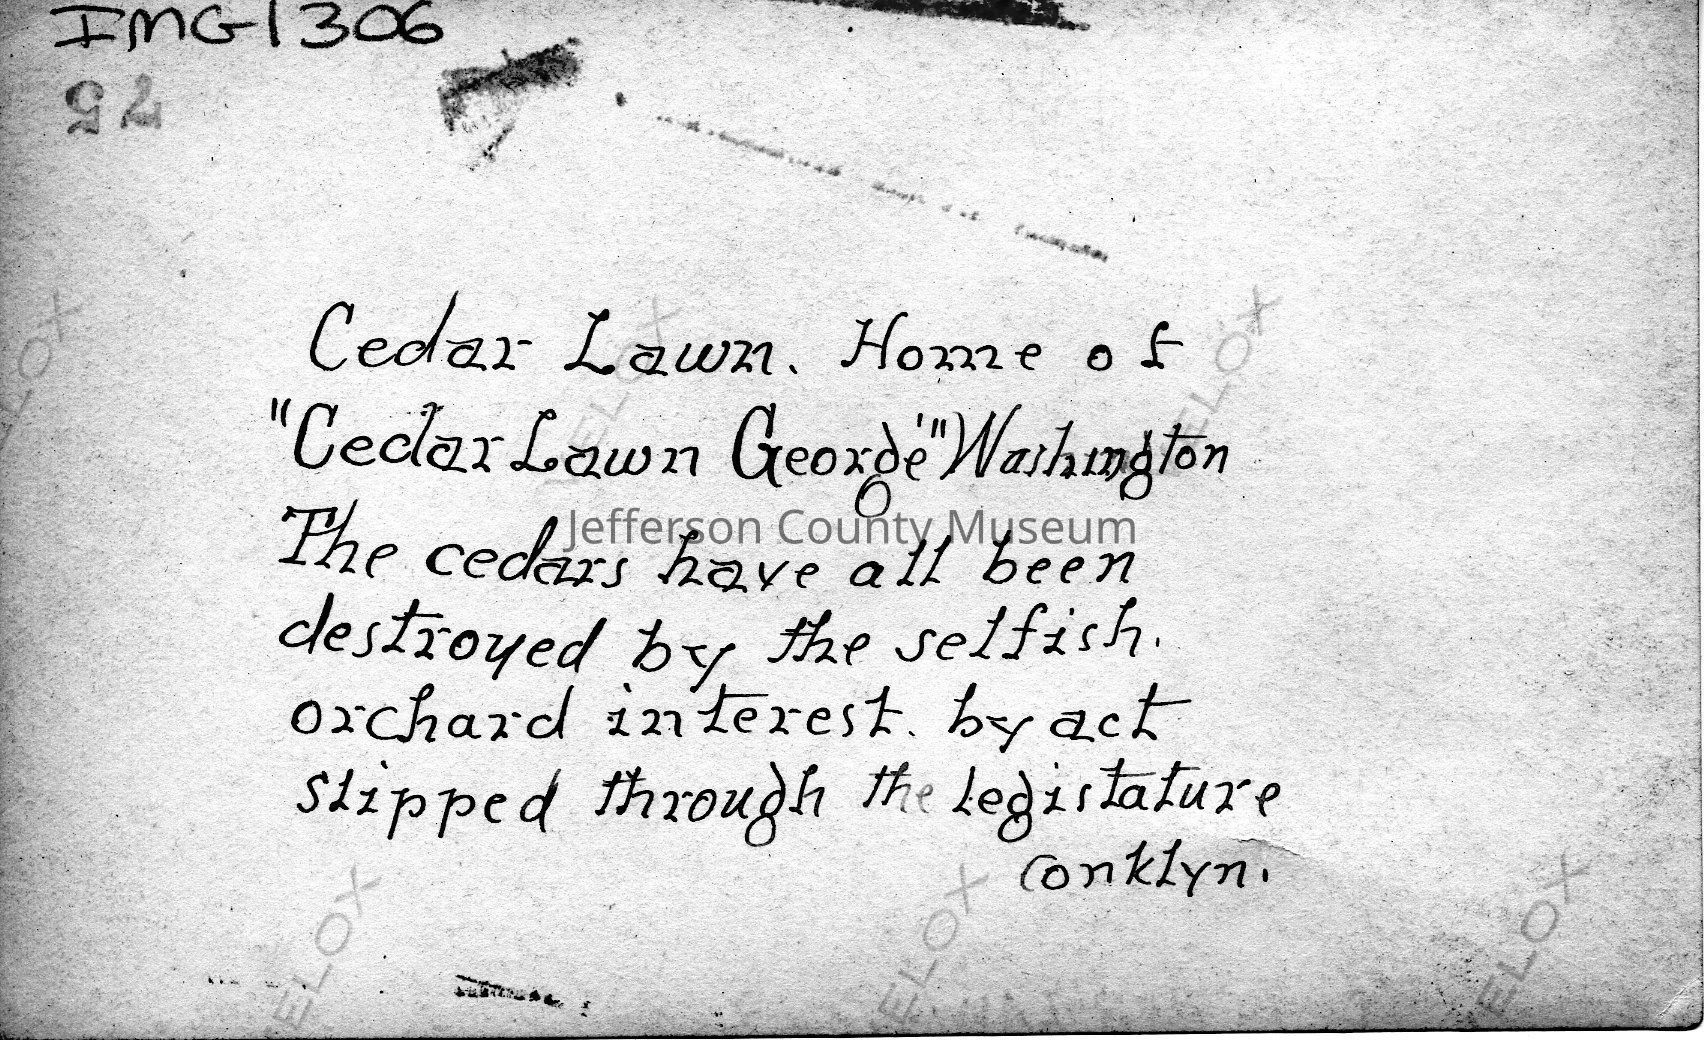 IMG1306
Cedar Lawn. Home of
"Cedar Lawn George" Washington
The cedars have all been
Jefferson County Museum
destroyed by the selfish.
orchard interest. by act
slipped through the legislature
Conklyn.
VELOX